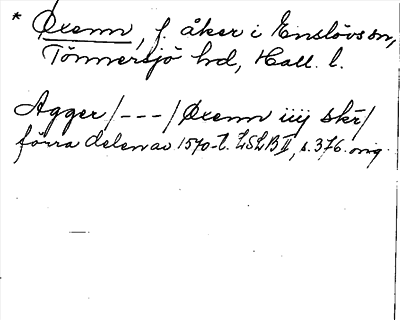 * Øxenn, f. åker i Enslövs sn,
Tönnersjö hd, Hall. l.
Agger/---/Øxenn iiij skr/
förra delen av 1570-t. LSLB II, s. 376. orig.